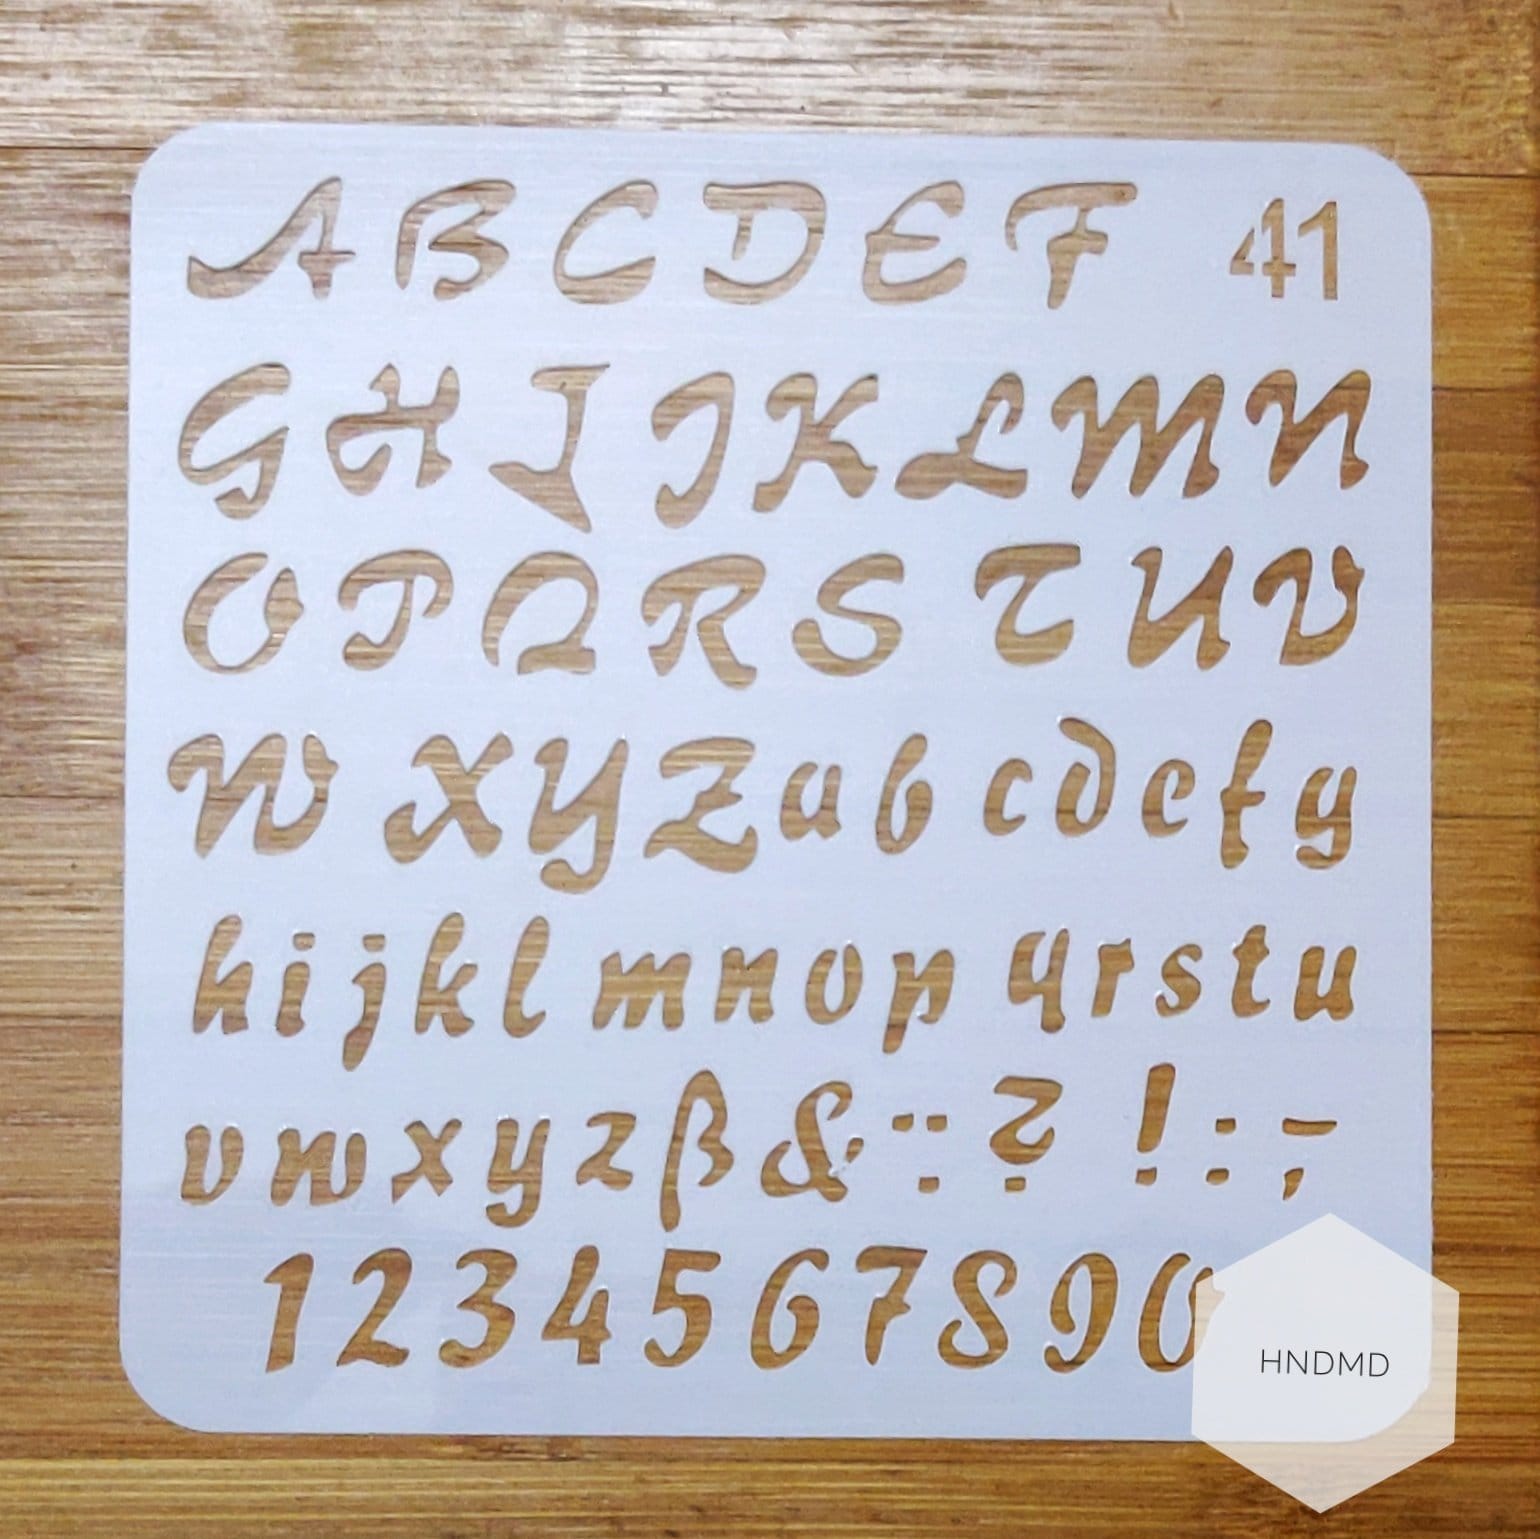 A B C D E F 41
G H I J K L M N
O P Q R S T U V
W X Y Z a b c d e f g
h i j k l m n o p q r s t u
v w x y z ß & ¨ : ? ! : - ,
1 2 3 4 5 6 7 8 9 0
HNDMD